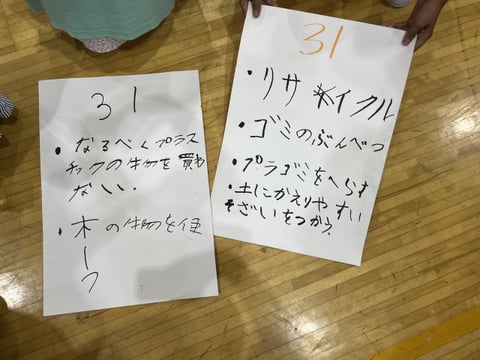 31
・なるべくプラス
チックの物を買わ
ない.
・木の物を使
う
31
・リサイクル
・ゴミのぶんべつ
・プラゴミをへらす
・土にかえりやすい
そざいをつかう.